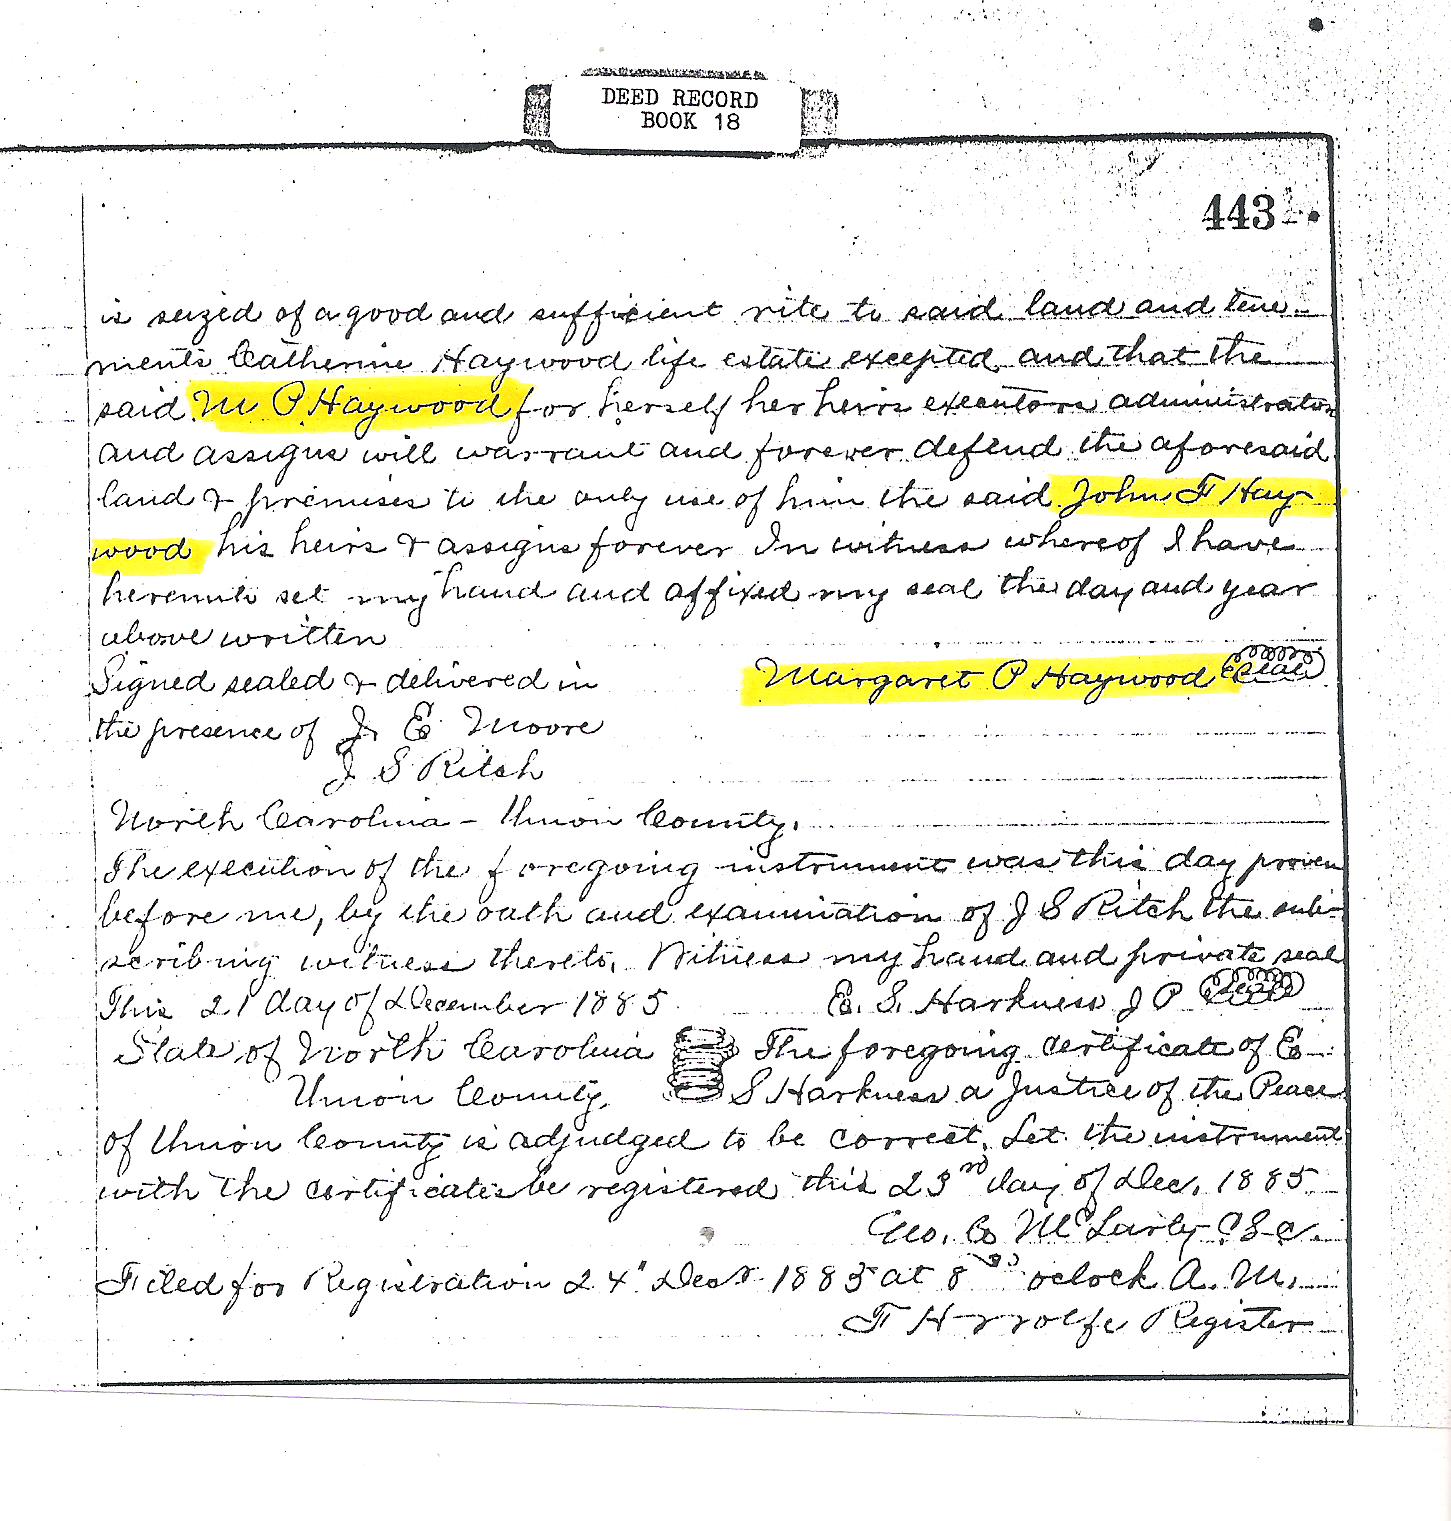 DEED RECORD
BOOK 18
443
is seized of a good and sufficient rite to said land and tene-
ments Catherine Haywood life estate excepted and that the
said M P Haywood for herself her heirs executors administrators
and assigns will warrant and forever defend the aforesaid
land & premises to the only use of him the said John F Hay-
wood his heirs & assigns forever In witness whereof I have
hereunto set my hand and affixed my seal the day and year
above written
Signed sealed & delivered in Margaret P Haywood Seal
the presence of J. E Moore
J S Ritch
North Carolina - Union County.
The execution of the foregoing instrument was this day proven
before me, by the oath and examination of J S Ritch the sub-
scribing witness thereto. Witness my hand and private seal
This 21 day of December 1885 E. S. Harkness J P Seal
State of North Carolina The foregoing certificate of E
Union County. S Harkness a Justice of the Peace
of Union County is adjudged to be correct. Let the instrument
with the certificates be registered this 23rd day of Dec. 1885
Geo. C McLarty C S C.
Filed for Registration 24" Decr 1885 at 8 oclock A. M.
F H Wolfe Register